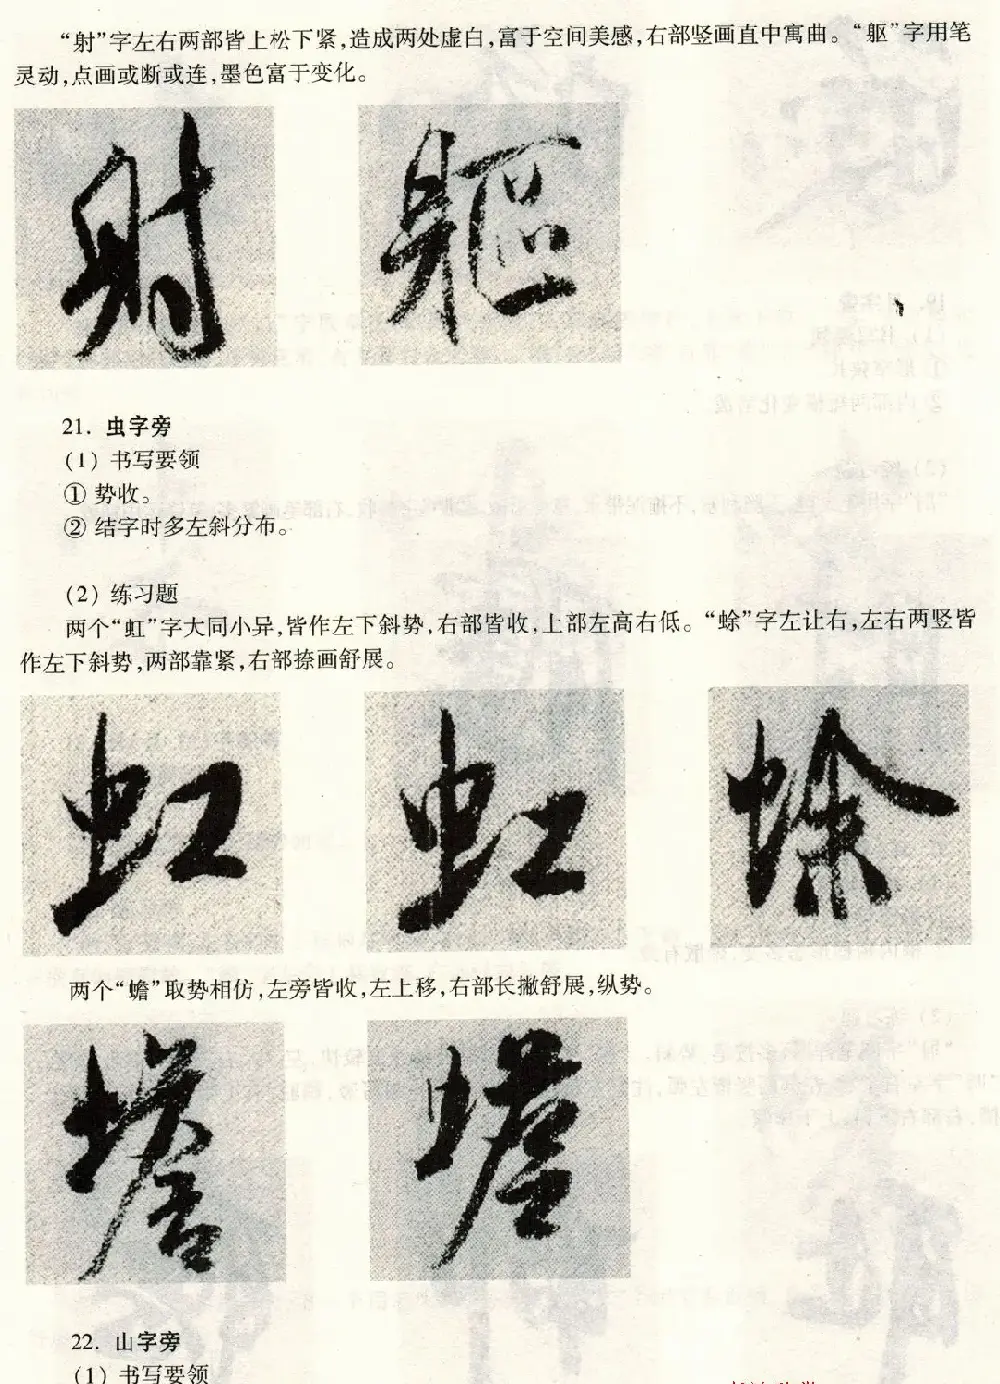 “射”字左右两部皆上松下紧，造成两处虚白，富于空间美感，右部竖画直中寓曲。“躯”字用笔
灵动，点画或断或连，墨色富于变化。
射 軀
21. 虫字旁
(1) 书写要领
① 势收。
② 结字时多左斜分布。
(2) 练习题
两个“虹”字大同小异，皆作左下斜势，右部皆收，上部左高右低。“蜍”字左让右，左右两竖皆
作左下斜势，两部靠紧，右部捺画舒展。
虹 虹 蜍
两个“蟾”取势相仿，左旁皆收，左上移，右部长撇舒展，纵势。
蟾 蟾
22. 山字旁
(1) 书写要领